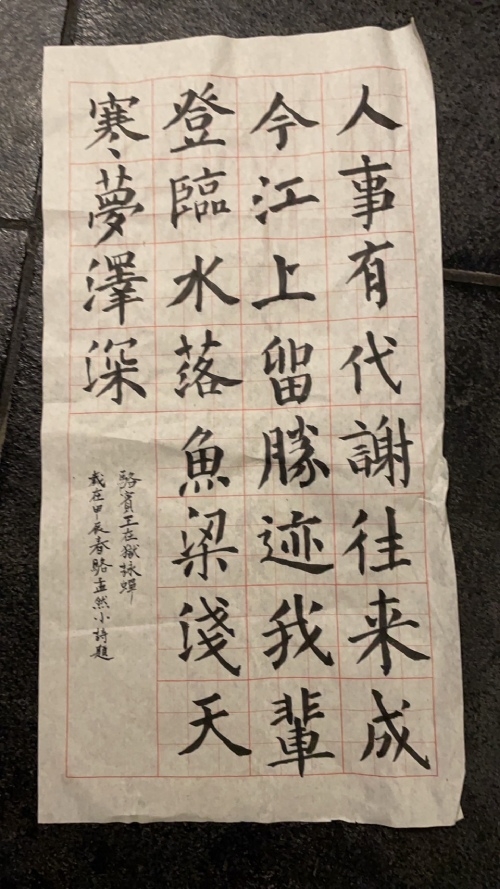 人事有代謝往来成
今江上留勝迹我輩
登臨水落魚梁淺天
寒夢澤深
駱賓王在獄詠蟬
歲在甲辰春駱孟然小詩題